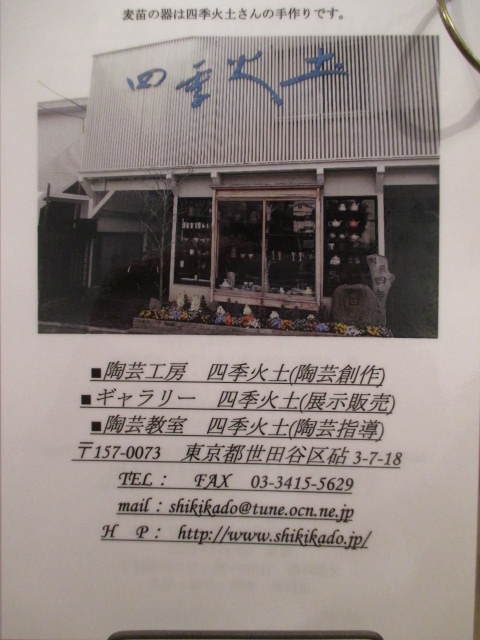 麦苗の器は四季火土さんの手作りです。
四季火土
■陶芸工房　四季火土(陶芸創作)
■ギャラリー　四季火土(展示販売)
■陶芸教室　四季火土(陶芸指導)
〒157-0073　東京都世田谷区砧 3-7-18
TEL：　FAX　03-3415-5629
mail：shikikado@tune.ocn.ne.jp
H　P：　http://www.shikikado.jp/